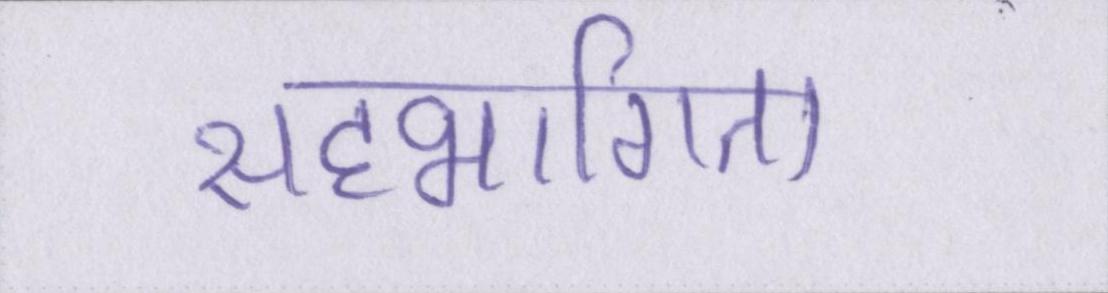 सहभागिता